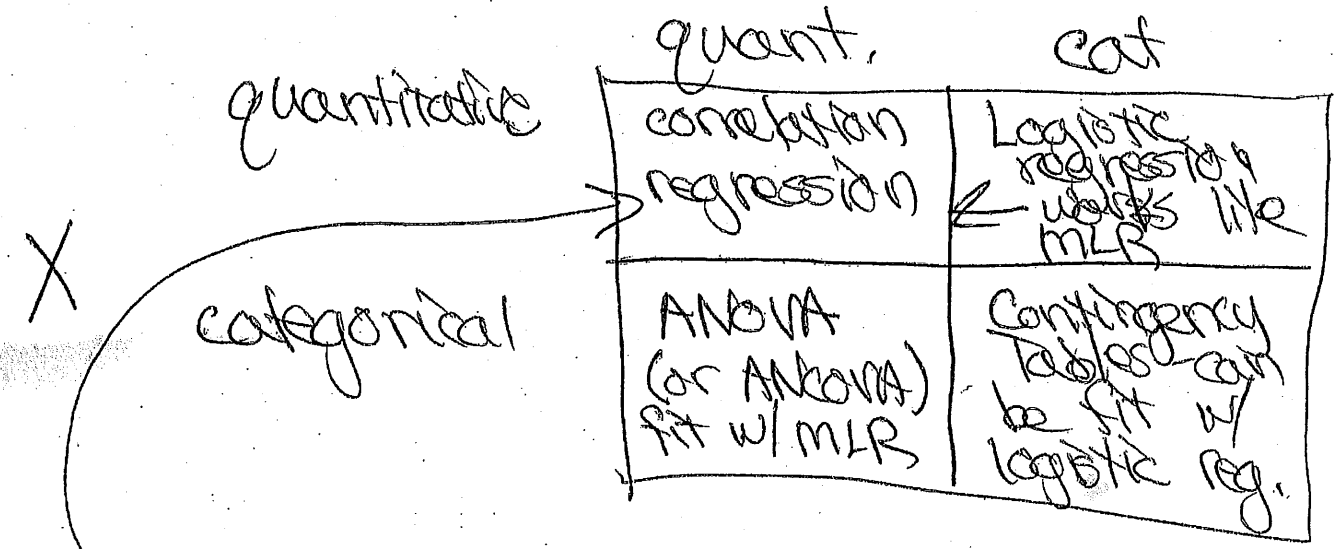 quant. cat
quantitative
correlation
regression
Logistic
regression
works like
MLR
X
categorical
ANOVA
(or ANCOVA)
fit w/ MLR
Contingency
Tables-can
be fit w/
logistic reg.